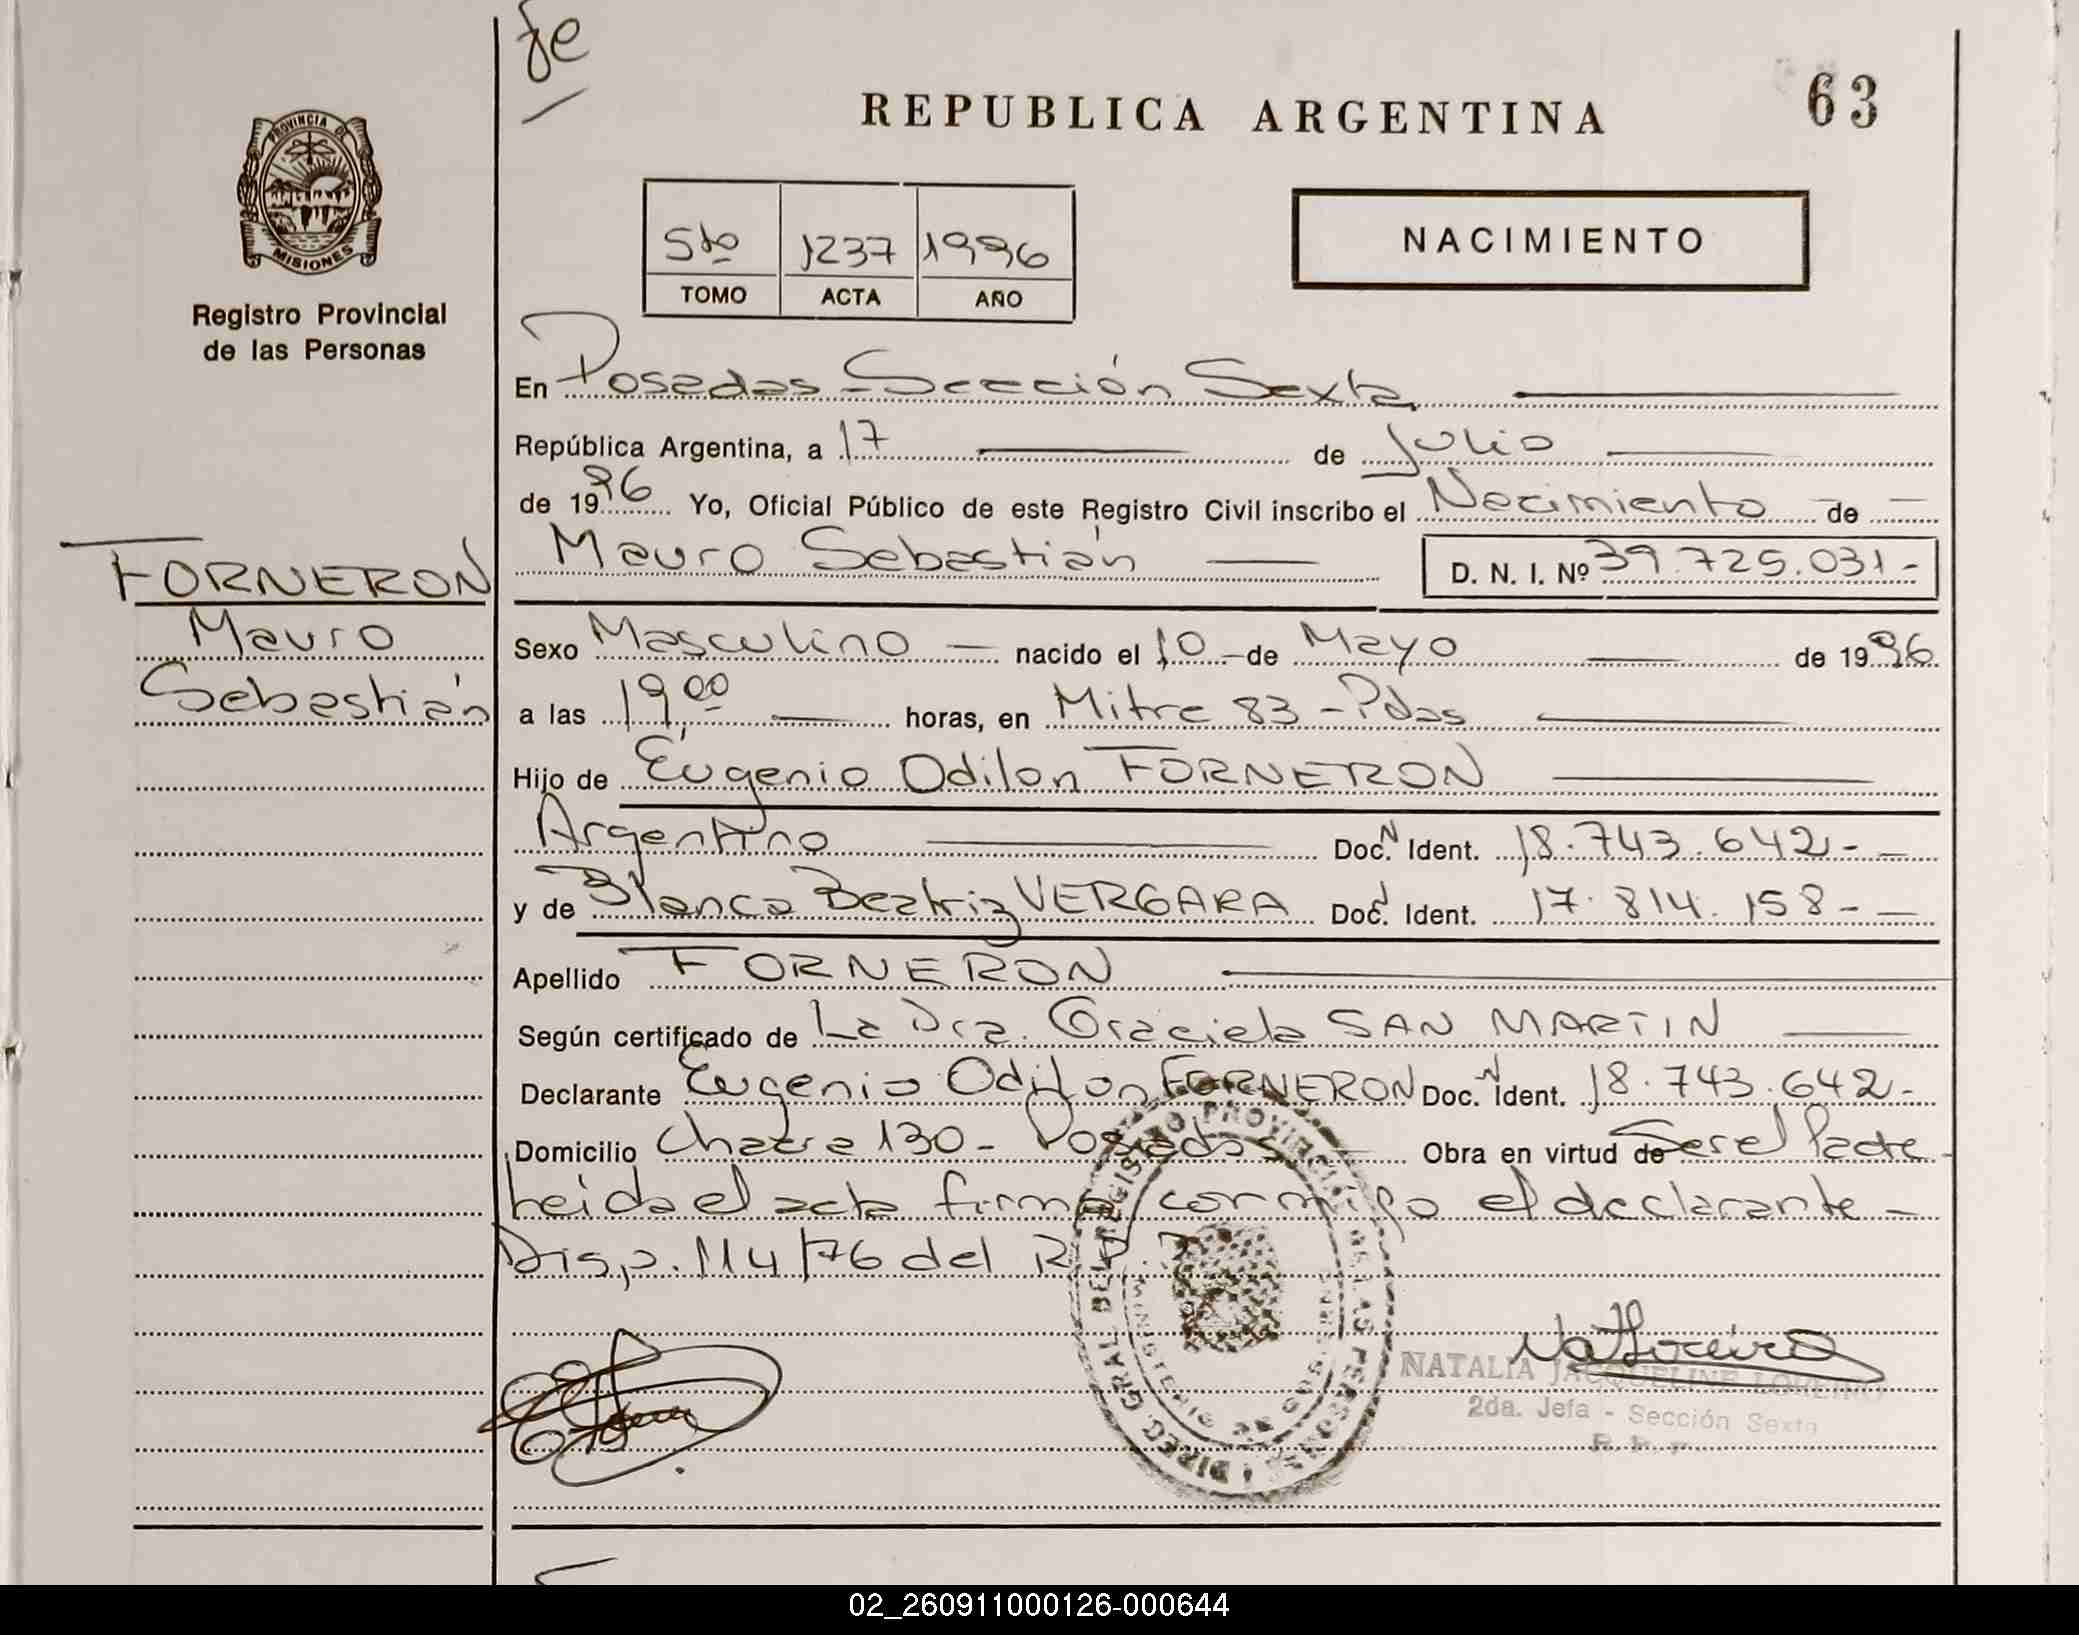 fe
REPUBLICA ARGENTINA
63
PROVINCIA DE
MISIONES
Registro Provincial
de las Personas
5to 1237 1996
TOMO ACTA AÑO
NACIMIENTO
En Posadas - Sección Sexta
República Argentina, a 17 de Julio
de 1996 Yo, Oficial Público de este Registro Civil inscribo el Nacimiento de
Mauro Sebastián D. N. I. Nº 39.725.031-
FORNERON
Mauro
Sebastián
Sexo Masculino nacido el 10 de Mayo de 1996
a las 19,00 horas, en Mitre 83 - Pdas
Hijo de Eugenio Odilon FORNERON
Argentino Doc. N Ident. 18.743.642-
y de Blanca Beatriz VERGARA Doc. Ident. 17.814.158-
Apellido FORNERON
Según certificado de La Dra. Graciela SAN MARTIN
Declarante Eugenio Odilon FORNERON Doc. N Ident. 18.743.642-
Domicilio Chacra 130 - Posadas Obra en virtud de Ser el Padre
Leida el acta firma conmigo el declarante -
Disp. 114/76 del R.P.
DIREC. GRAL. DEL REGISTRO PROVINCIAL DE LAS PERSONAS
NATALIA JACQUELINE LOREIRO
2da. Jefa - Sección Sexta
R. P. P.
02_260911000126-000644